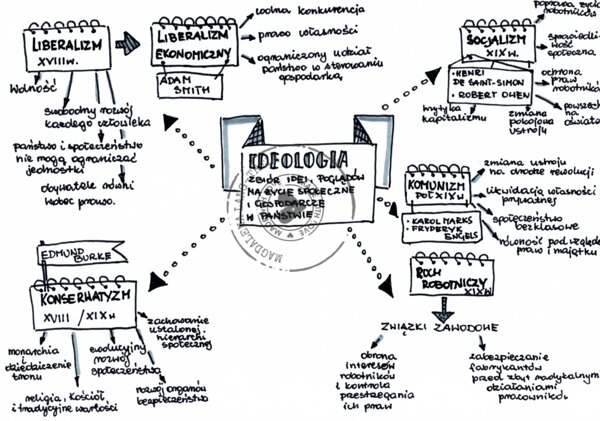 LIBERALIZM
XVIIIW.
Wolność
swobodny rozwój
każdego człowieka
państwo i społeczeństwo
nie mogą ograniczać
jednostki
obywatele równi
wobec prawa.
LIBERALIZM
EKONOMICZNY
ADAM
SMITH
wolna konkurencja
prawo własności
ograniczony udział
państwa w sterowaniu
gospodarką
SOCJALIZM
XIXW.
• HENRI
DE SAINT-SIMON
• ROBERT OWEN
poprawa życia
robotników
sprawiedli-
wość
społeczna
ochrona
praw
robotników
powszech
na
oświata
zmiana
pokojowa
ustroju
krytyka
kapitalizmu
IDEOLOGIA
ZBIÓR IDEI, POGLĄDÓW
NA ŻYCIE SPOŁECZNE
I GOSPODARCZE
W PAŃSTWIE
KOMUNIZM
POŁ XIXW
• KAROL MARKS
• FRYDERYK
ENGELS
zmiana ustroju
na drodze rewolucji
likwidacja własności
prywatnej
społeczeństwo
bezklasowe
równość pod względem
praw i majątku
EDMUND
BURKE
KONSERWATYZM
XVIII / XIXW
monarchia
i
dziedziczenie
tronu
religia, Kościół
i tradycyjne wartości
ewolucyjny
rozwój
społeczeństwa
rozwój organów
bezpieczeństwa
zachowanie
ustalonej
hierarchi
społecznej
RUCH
ROBOTNICZY
XIXW
ZWIĄZKI ZAWODOWE
obrona
interesów
robotników
i kontrola
przestrzegania
ich praw
zabezpieczanie
fabrykantów
przed zbyt radykalnym
działaniami
pracowników